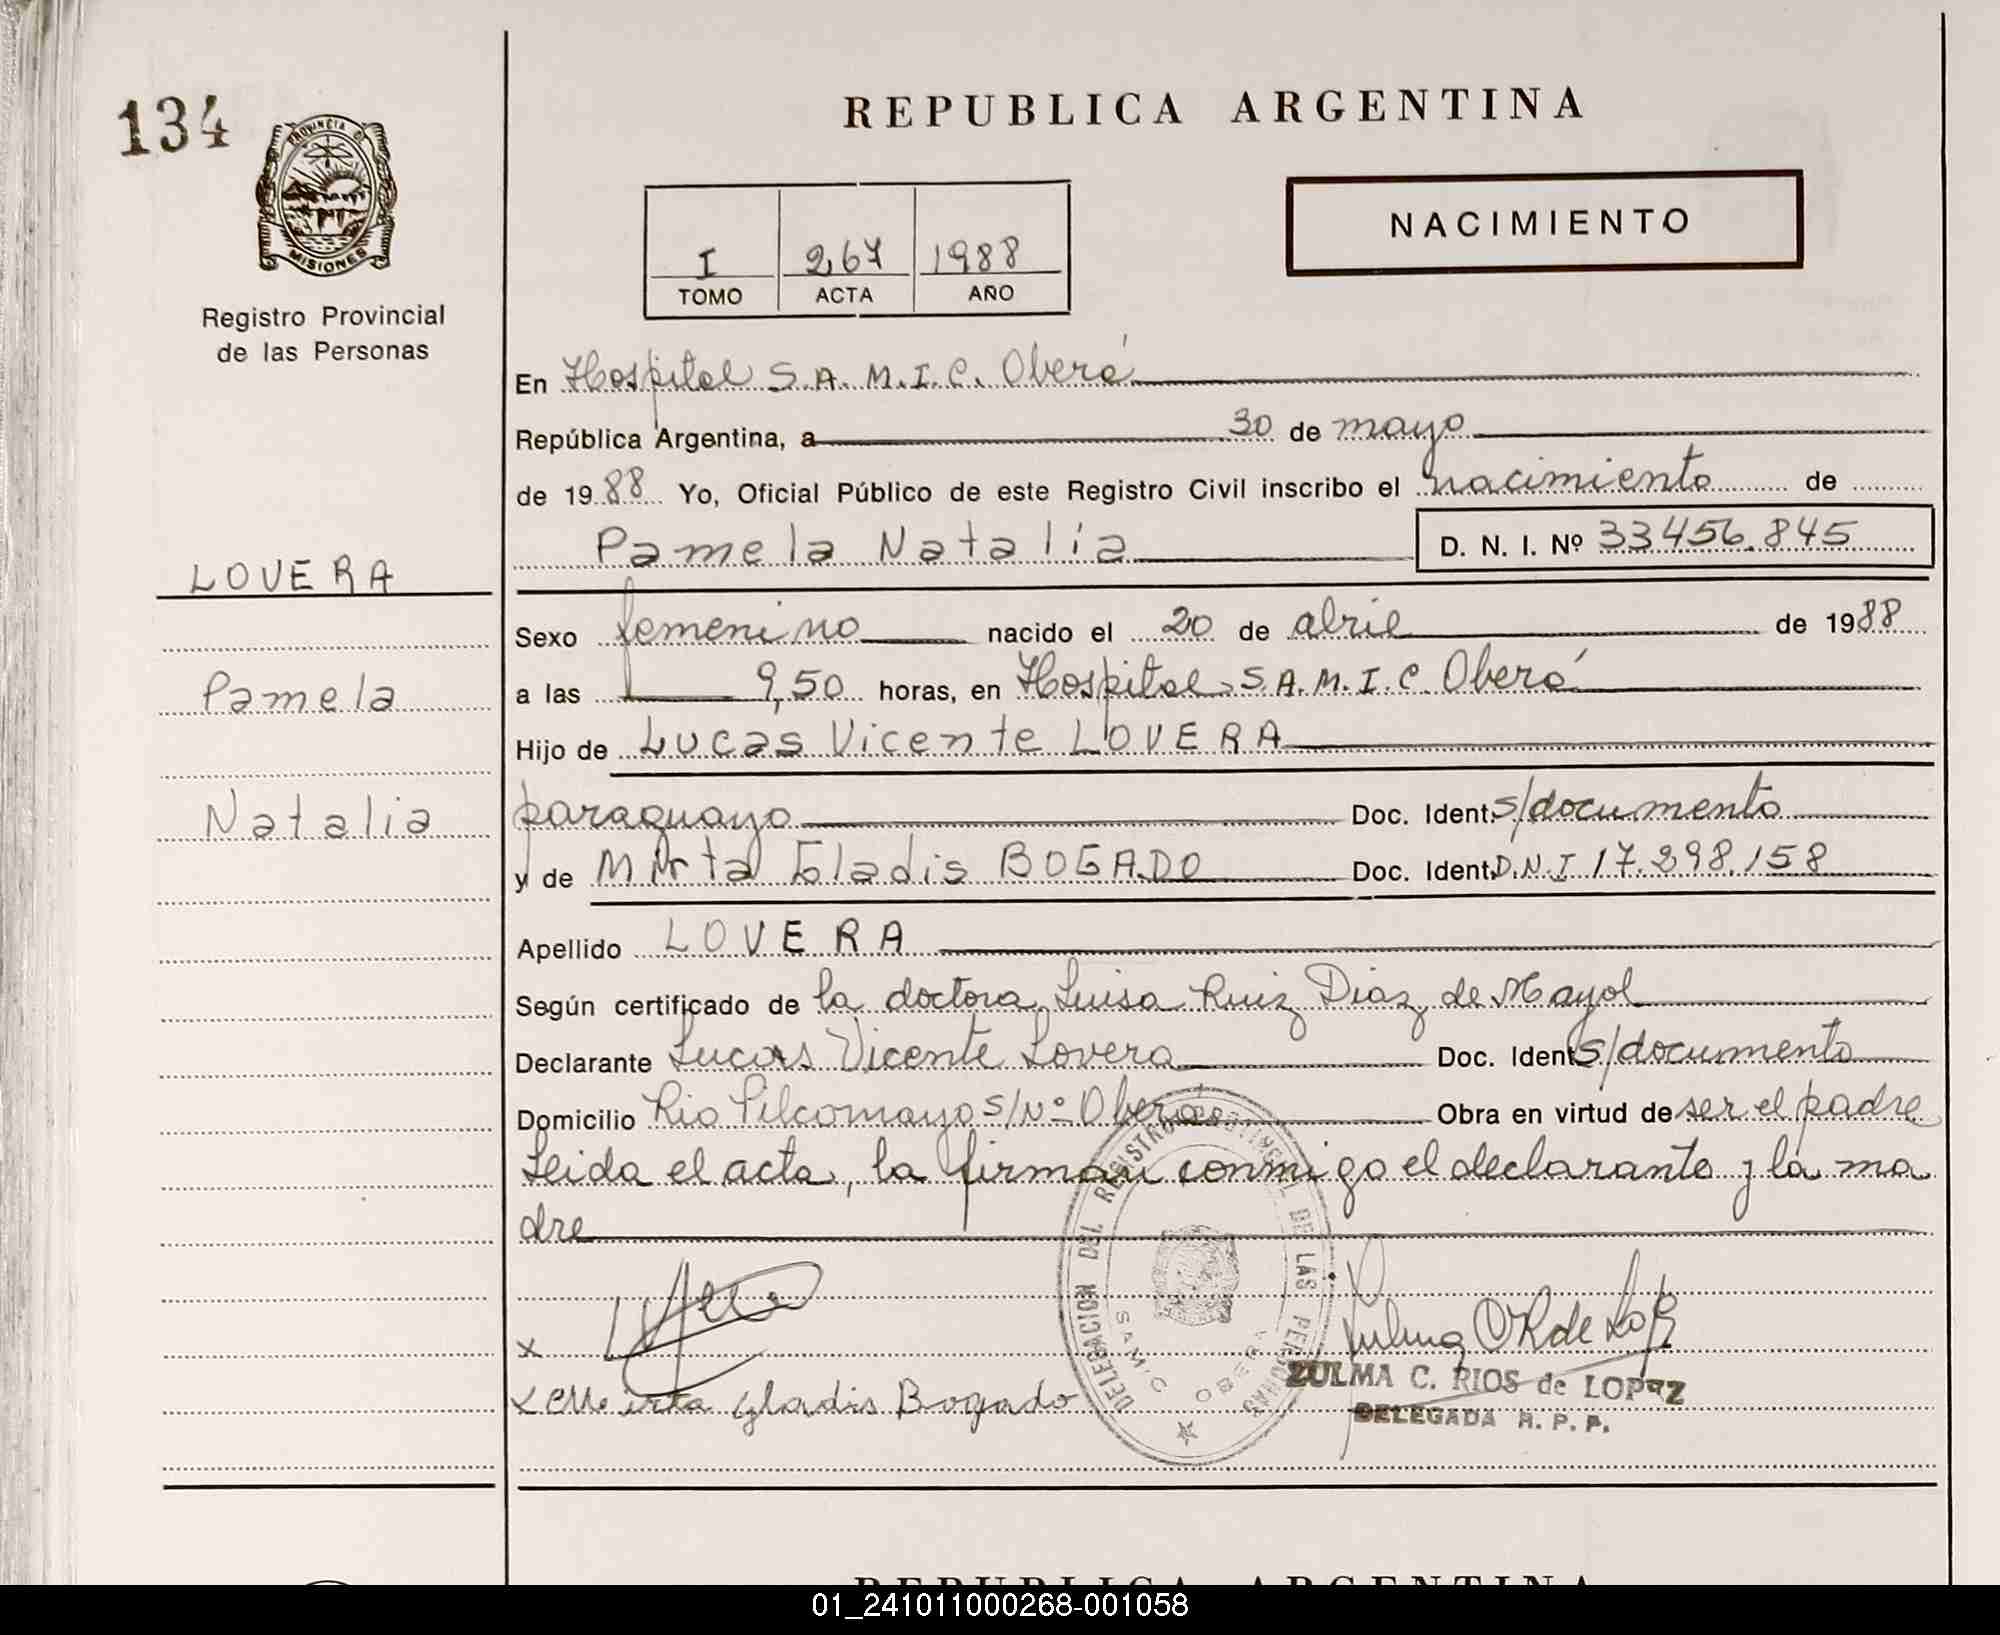 134
REPUBLICA ARGENTINA
PROVINCIA D
MISIONES
Registro Provincial
de las Personas
NACIMIENTO
I 267 1988
TOMO ACTA AÑO
En Hospital S.A.M.I.C. Oberá
República Argentina, a 30 de mayo
de 1988 Yo, Oficial Público de este Registro Civil inscribo el nacimiento de
Pamela Natalia D. N. I. Nº 33456.845
LOVERA
Pamela
Natalia
Sexo femenino nacido el 20 de abril de 1988
a las 9,50 horas, en Hospital S.A.M.I.C. Oberá
Hijo de Lucas Vicente LOVERA
paraguayo Doc. Ident. s/documento
y de Mirta Gladis BOGADO Doc. Ident. D.N.I 17.298.158
Apellido LOVERA
Según certificado de la doctora Luisa Ruiz Diaz de Mayol
Declarante Lucas Vicente Lovera Doc. Ident. s/documento
Domicilio Rio Pilcomayo s/Nº Oberá Obra en virtud de ser el padre
Leida el acta, la firman conmigo el declarante y la ma
dre
DELEGACION DEL REGISTRO PROVINCIAL DE LAS PERSONAS
SAMIC OBERA
x
x Mirta Gladis Bogado
ZULMA C. RIOS de LOPEZ
DELEGADA R. P. P.
REPUBLICA ARGENTINA
01_241011000268-001058